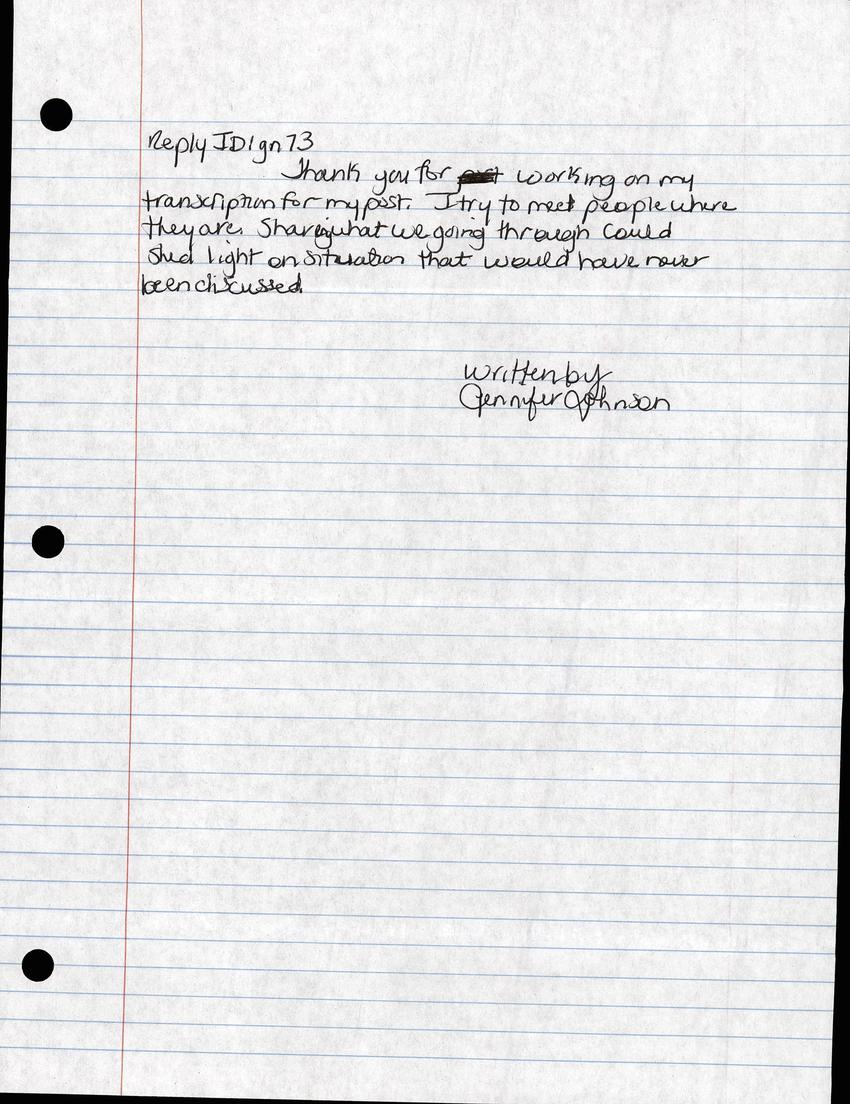 Reply ID 1gn73
Thank you for working on my
transcription for my post. I try to meet people where
they are. Sharing what we going through could
shed light on situation that would have never
been discussed.
written by
Jennifer Johnson